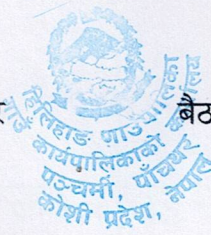 हिलिहाङ गाउँपालिका
गाउँ कार्यपालिकाको कार्यालय
पञ्चमी, पाँचथर
कोशी प्रदेश, नेपाल
र
बैठ